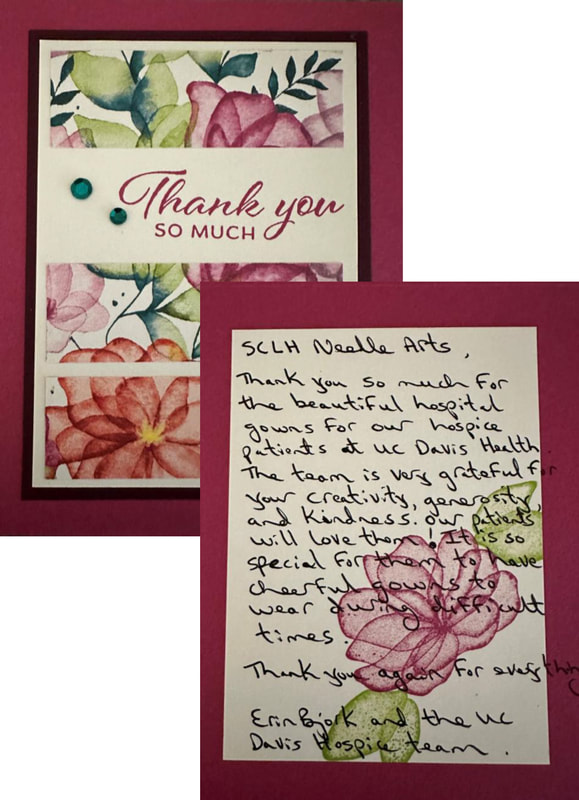 Thank you
SO MUCH
SCLH Needle Arts,
Thank you so much for
the beautiful hospital
gowns for our hospice
patients at UC Davis Health.
The team is very grateful for
your creativity, generosity,
and kindness. Our patients
will love them! It is so
special for them to have
cheerful gowns to
wear during difficult
times.
Thank you again for everything
Erin Bjork and the UC
Davis Hospice team.